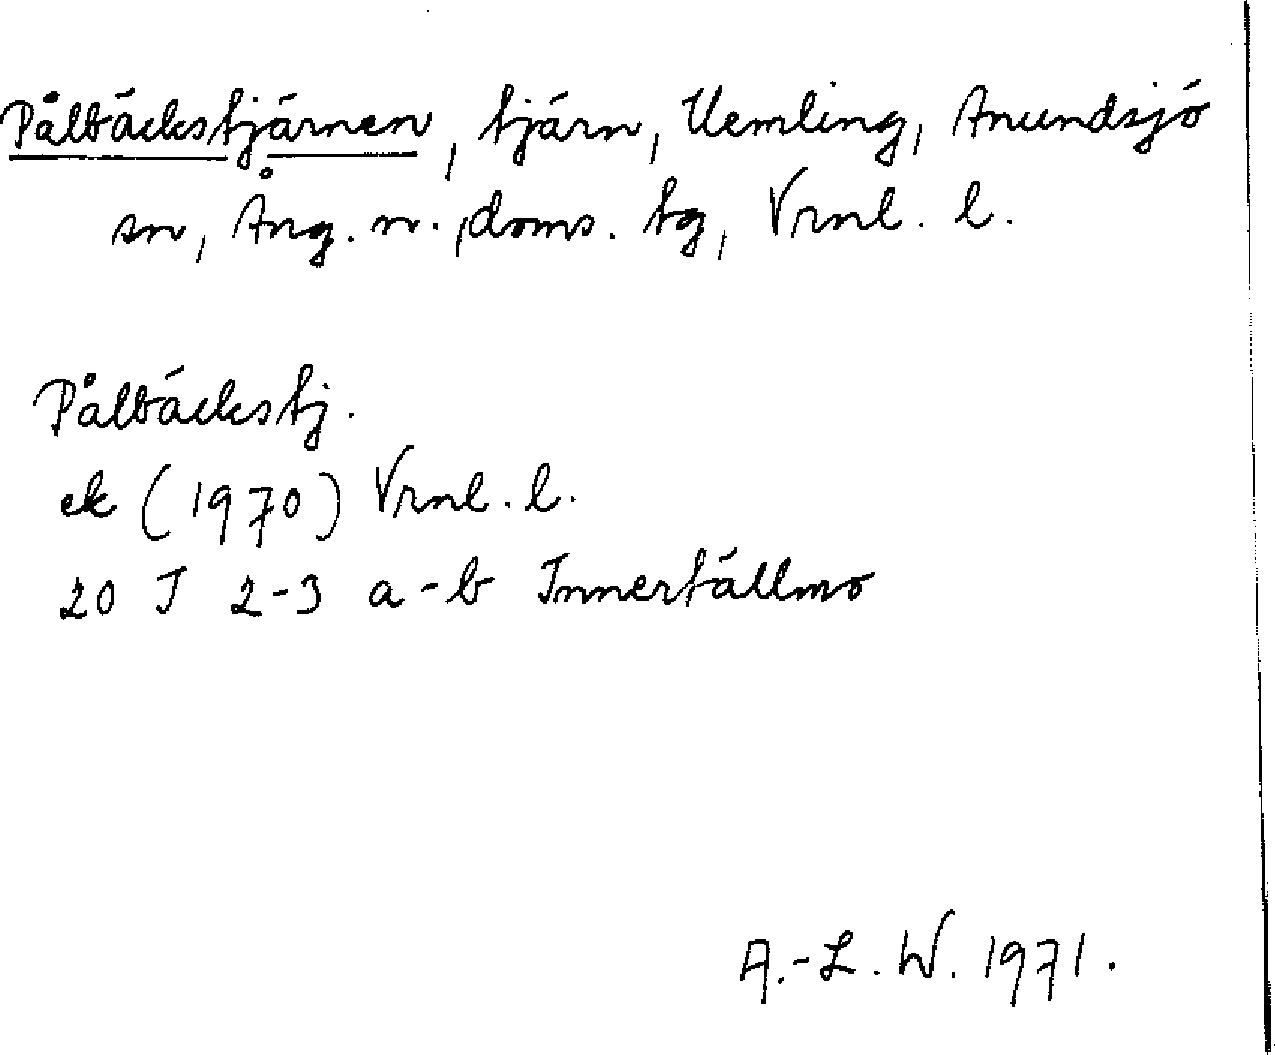 Pålbäckstjärnen, tjärn, Uemling, Anundsjö
sn, Ång. n., doms. tg, Vrnl. l.
Pålbäckstj.
ek (1970) Vrnl. l.
20 J 2-3 a-b Innertällmo
A.-L. W. 1971.